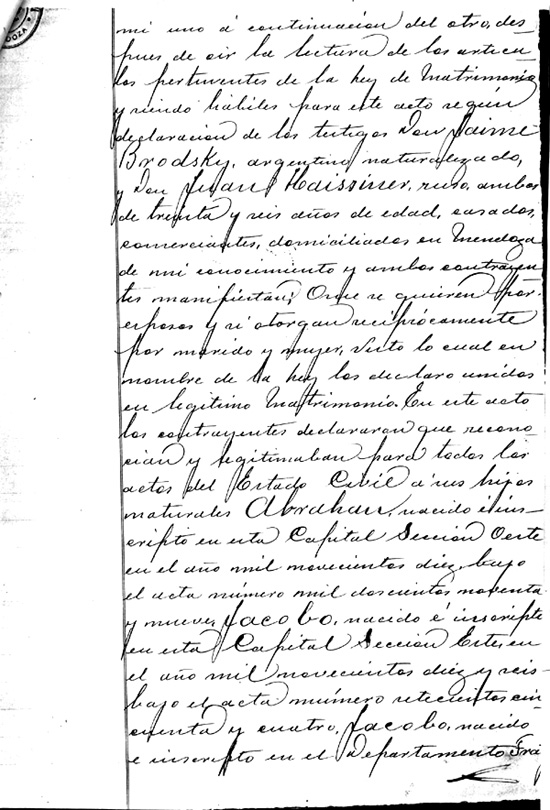 DOZA
mi uno á continuación del otro, des-
pues de oir la lectura de los articu
los pertinentes de la Ley de Matrimonio
y siendo hábiles para este acto según
declaración de los testigos Don Jaime
Brodsky, argentino naturalizado,
y Don Juan Haissiner, ruso, ambos
de treinta y seis años de edad, casados,
comerciantes, domiciliados en Mendoza
de mi conocimiento y ambos contrayen
tes manifiestan; Que se quieren por
esposos y se otorgan reciprocamente
por marido y mujer, Visto lo cual en
nombre de la Ley los declaro unidos
en legitimo Matrimonio. En este acto
los contrayentes declararon que recono-
cian y legitimaban para todos los
actos del Estado Civil á sus hijos
naturales Abrahan, nacido é ins-
cripto en esta Capital Sección Oeste
en el año mil novecientos diez, bajo
el acta número mil doscientos noventa
y nueve, Jacobo, nacido é inscripto
en esta Capital Sección Este, en
el año mil novecientos diez y seis
bajo el acta número setecientos cin
cuenta y cuatro, Jacobo, nacido
e inscripto en el Departamento Gra